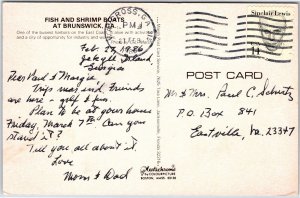 FISH AND SHRIMP BOATS
AT BRUNSWICK, GA.
One of the busiest harbors on the East Coast
and a city of opportunity for industry and
Feb. 27, 1986
Jekyll Island,
Georgia
Dear Paul & Margie
Trips max and friends
are here - golf & fun.
Plan to be at your house
Friday, March 7th. Can you
stand it?
Tell you all about it.
Love
Mom & Dad
PM
Sinclair Lewis
14
POST CARD
Mr & Mrs. Paul C. Schultz
P.O. Box 841
Eastville, Va. 23347